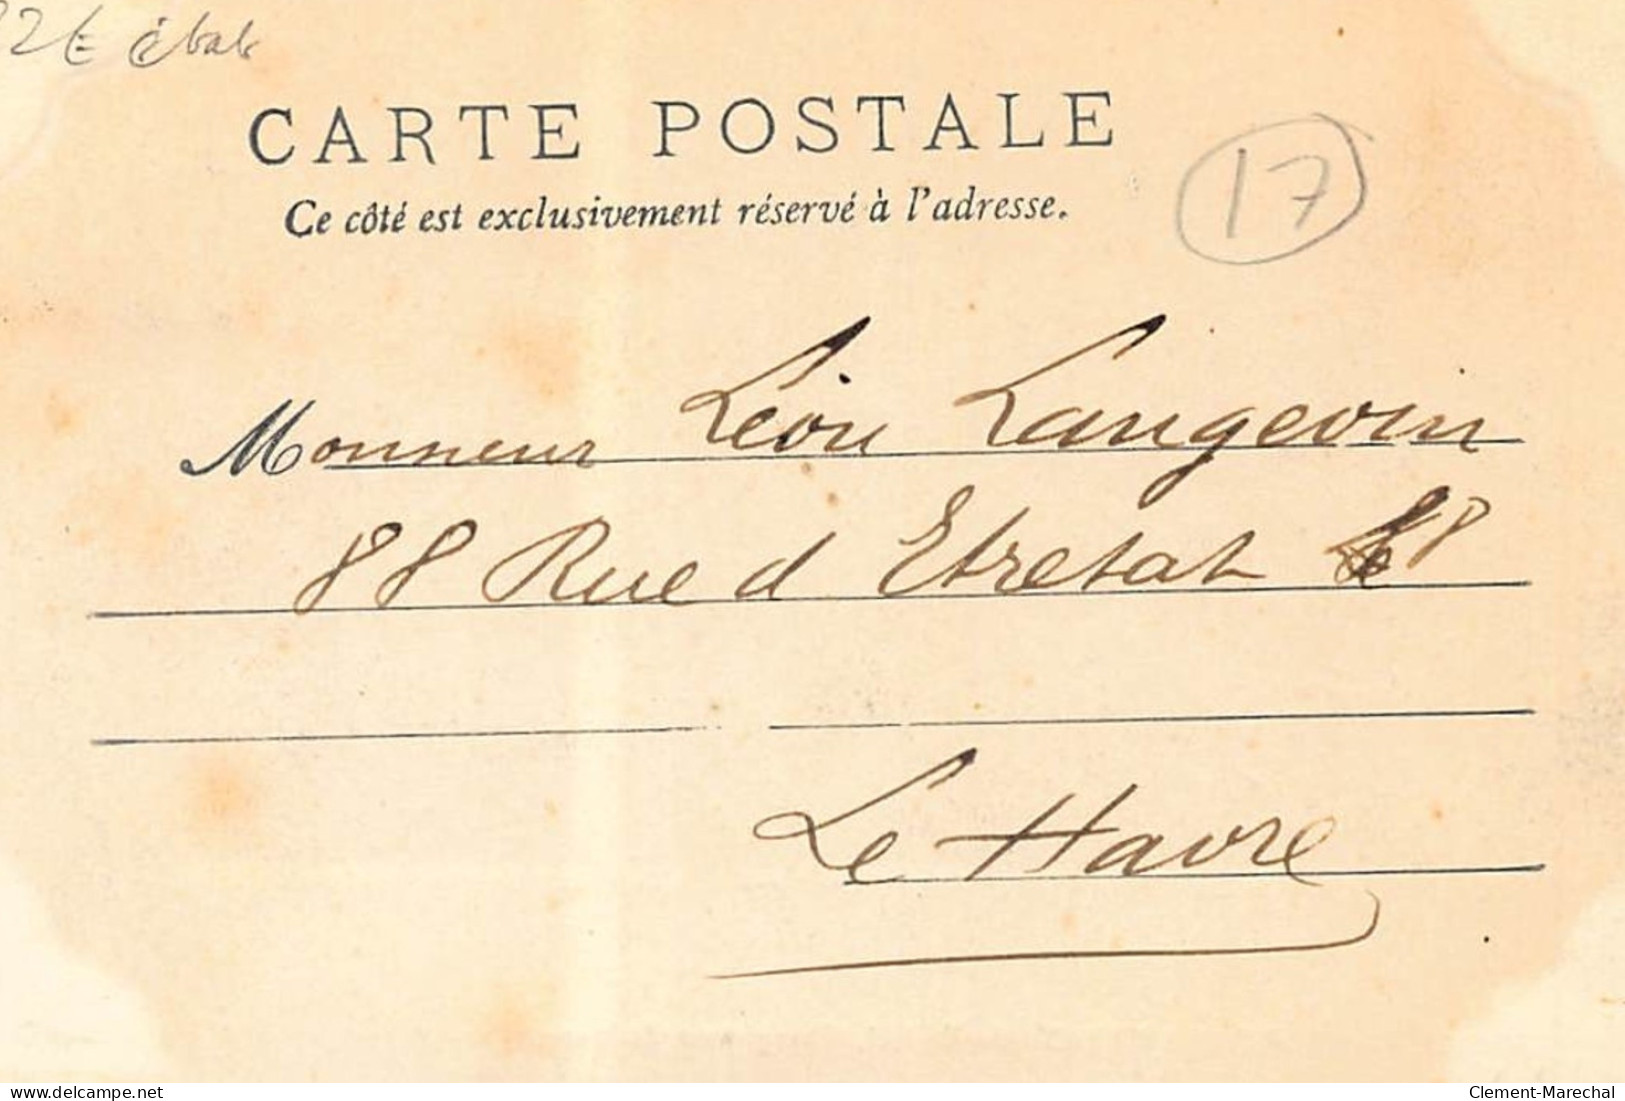 2€ état
CARTE POSTALE
17
Ce côté est exclusivement réservé à l'adresse.
Monsieur Léon Langevin
88 Rue d Etretat 88
Le Havre
www.delcampe.net
Clement-Marechal